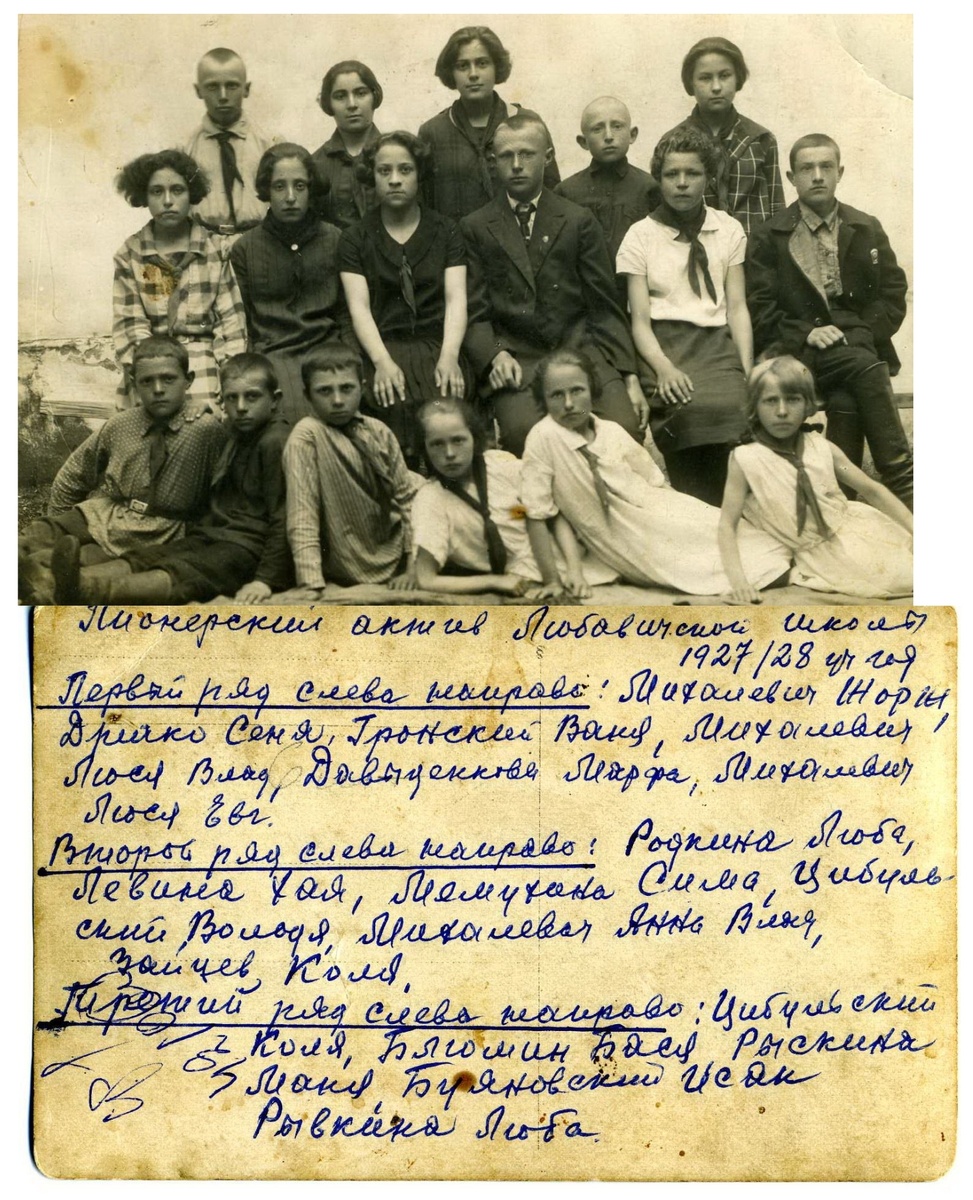 Пионерский актив Любавичской школы
1927/28 уч год
Первый ряд слева направо: Михалевич Жорж,
Дрейко Сеня, Гронский Ваня, Михалевич
Люся Влад, Давыденкова Марфа, Михалевич
Люся Евг.
Второй ряд слева направо: Родкина Люба,
Левина Хая, Мемухина Сима, Цибуль-
ский Володя, Михалевич Анна Влад,
Зайцев Коля,
Третий ряд слева направо: Цибульский
Коля, Блюмин Бася, Рыскина
Маня, Буяновский Исак
Рывкина Люба.